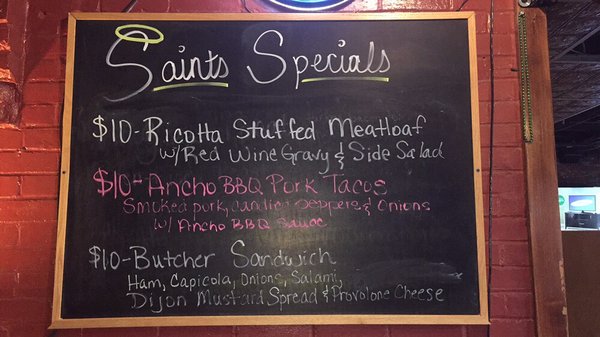 Saints Specials
$10-Ricotta Stuffed Meatloaf
w/ Red Wine Gravy & Side Salad
$10-Ancho BBQ Pork Tacos
Smoked pork, candied peppers & onions
w/ Ancho BBQ Sauce
$10-Butcher Sandwich
Ham, Capicola, Onions, Salami,
Dijon Mustard Spread & Provolone Cheese